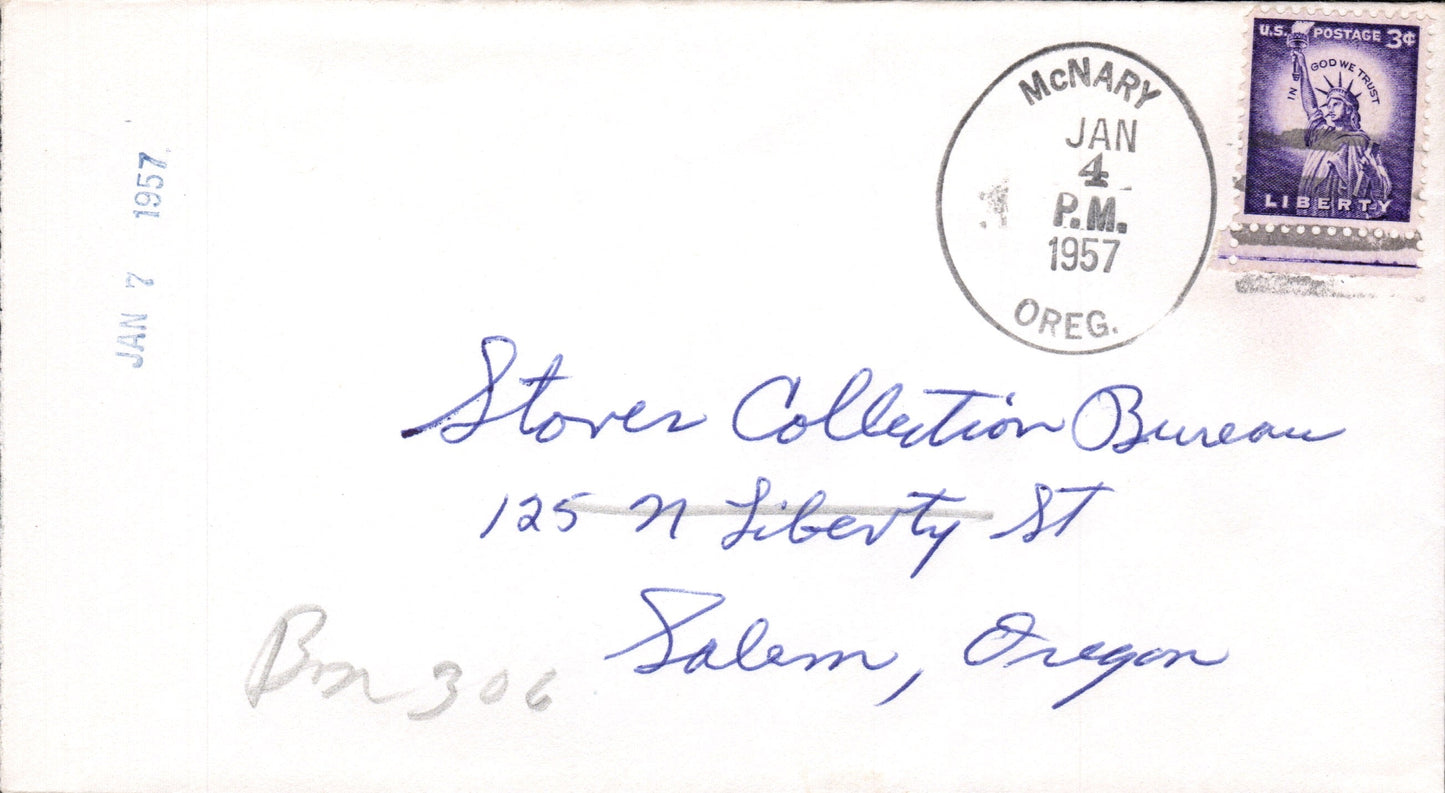 U.S. POSTAGE 3¢
IN GOD WE TRUST
LIBERTY
McNARY
JAN
4
P.M.
1957
OREG.
JAN 7 1957
Stover Collection Bureau
125 N Liberty St
Salem, Oregon
306